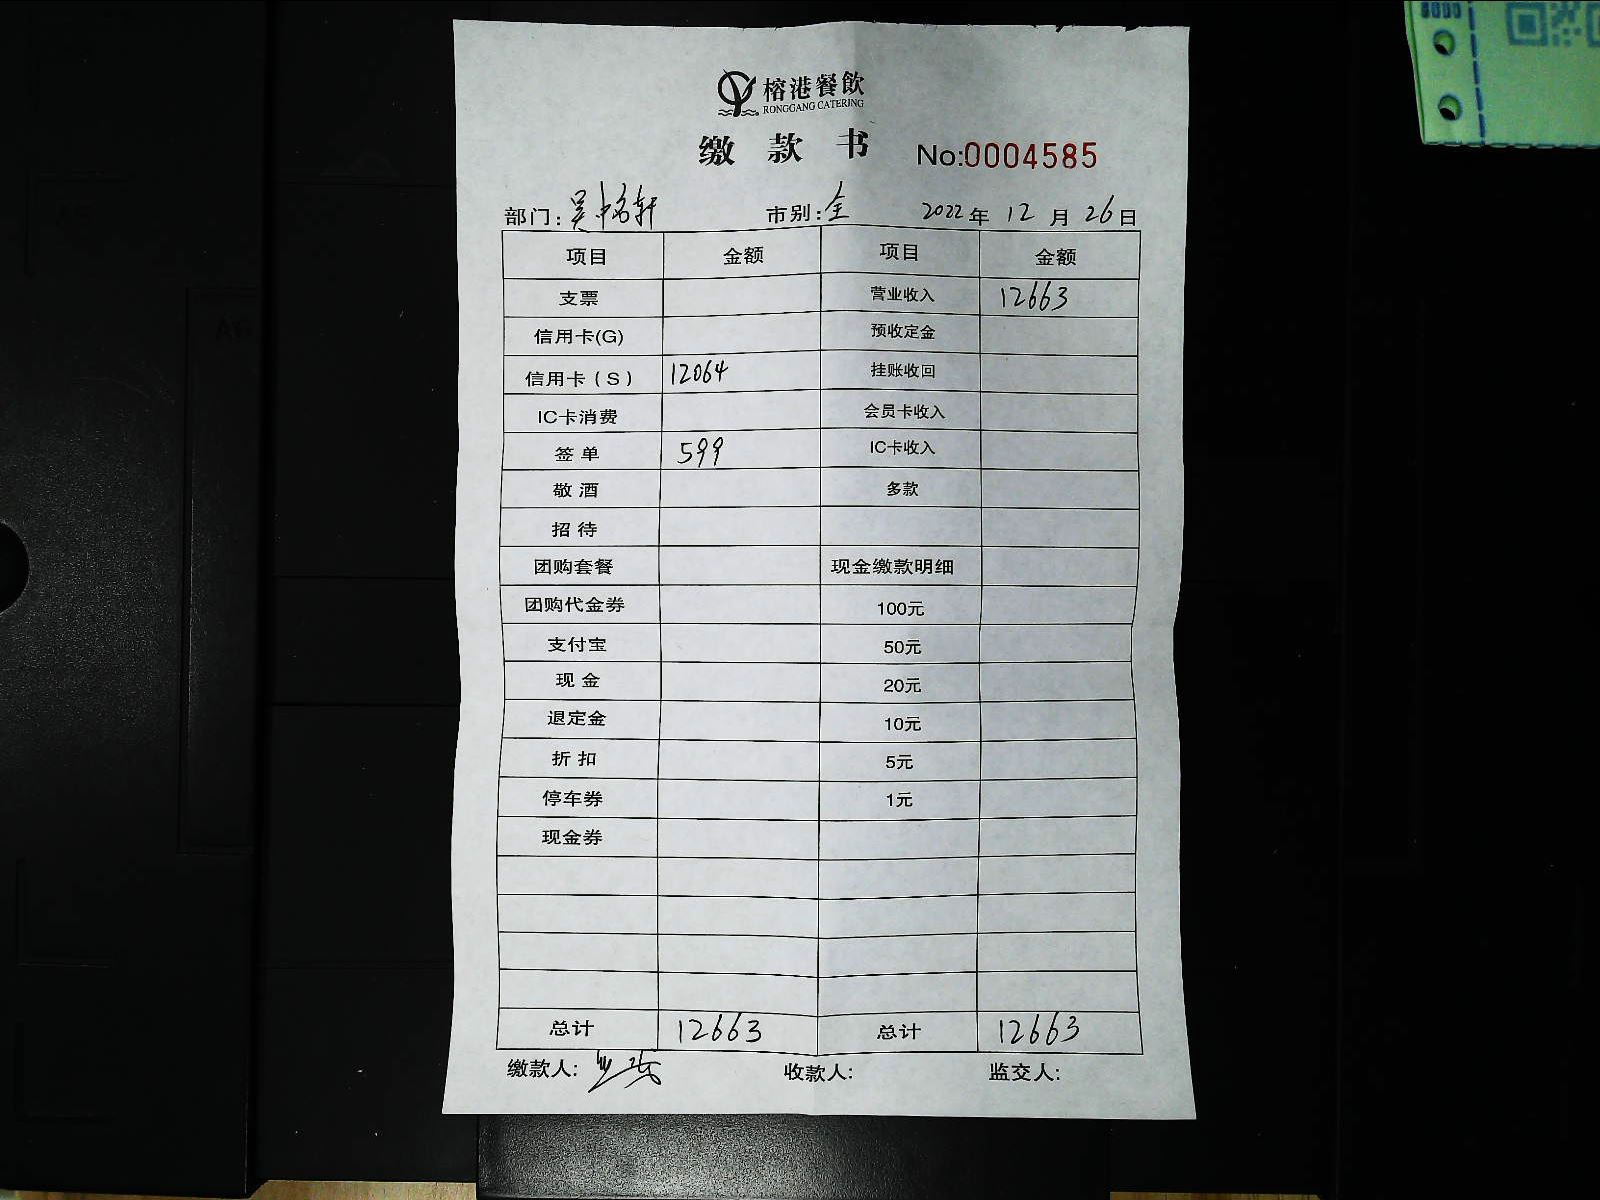 榕港餐飲
RONGGANG CATERING
缴款书 No:0004585
部门: 吴 轩 市别: 全 2022年 12月 26日
项目 金额 项目 金额
支票 营业收入 12663
信用卡(G) 预收定金
信用卡(S) 12064 挂账收回
IC卡消费 会员卡收入
签单 599 IC卡收入
敬酒 多款
招待
团购套餐 现金缴款明细
团购代金券 100元
支付宝 50元
现金 20元
退定金 10元
折扣 5元
停车券 1元
现金券
总计 12663 总计 12663
缴款人: 收款人: 监交人: